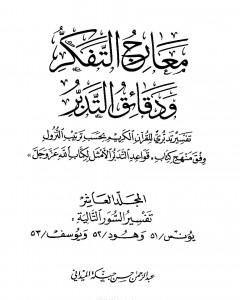 معارج التفكر
ودقائق التدبر
تفسير تدبري للقرآن الكريم بحسب ترتيب النزول
وفق منهج كتاب «قواعد التدبر الأمثل لكتاب الله عز وجل»
المجلد العاشر
تفسير السور التالية:
يونس/٥١ وهود/٥٢ ويوسف/٥٣
عبد الرحمن حسن حبنكة الميداني